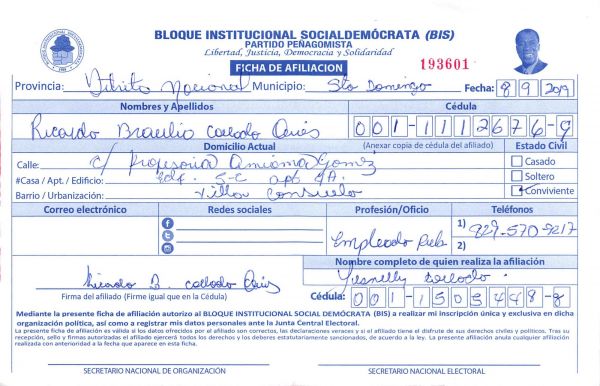 BLOQUE INSTITUCIONAL SOCIALDEMÓCRATA (BIS)
PARTIDO PEÑAGOMISTA
Libertad, Justicia, Democracia y Solidaridad
FICHA DE AFILIACION
193601
Provincia: Ditrito Nacional Municipio: Sto Domingo Fecha: 8/9/2019
Nombres y Apellidos Cédula
Ricardo Braulio Collado 001-1112676-9
Domicilio Actual (Anexar copia de cédula del afiliado) Estado Civil
Calle: c/ Profesora Gomez Casado
#Casa / Apt. / Edificio: Edf. 5-C apt 4A. Soltero
Barrio / Urbanización: Villa Consuelo Conviviente
Correo electrónico Redes sociales Profesión/Oficio Teléfonos
Empleado 1) 829-570-9217
2)
Nombre completo de quien realiza la afiliación
Ricardo B. Collado Yesnelly Collado
Firma del afiliado (Firme igual que en la Cédula) Cédula: 001-1505448-2
Mediante la presente ficha de afiliación autorizo al BLOQUE INSTITUCIONAL SOCIAL DEMÓCRATA (BIS) a realizar mi inscripción única y exclusiva en dicha
organización política, así como a registrar mis datos personales ante la Junta Central Electoral.
La presente ficha de afiliación es válida si los datos ofrecidos por el afiliado son correctos, las declaraciones veraces y si el afiliado tiene el disfrute de sus derechos civiles y políticos. Tras su
recepción, sello y firmas autorizadas el afiliado ejercerá todos los derechos y los deberes estatutariamente sancionados, de acuerdo a la ley. La presente afiliación anula cualquier afiliación
realizada con anterioridad a la fecha que aparece en esta ficha.
SECRETARIO NACIONAL DE ORGANIZACIÓN SECRETARIO NACIONAL ELECTORAL